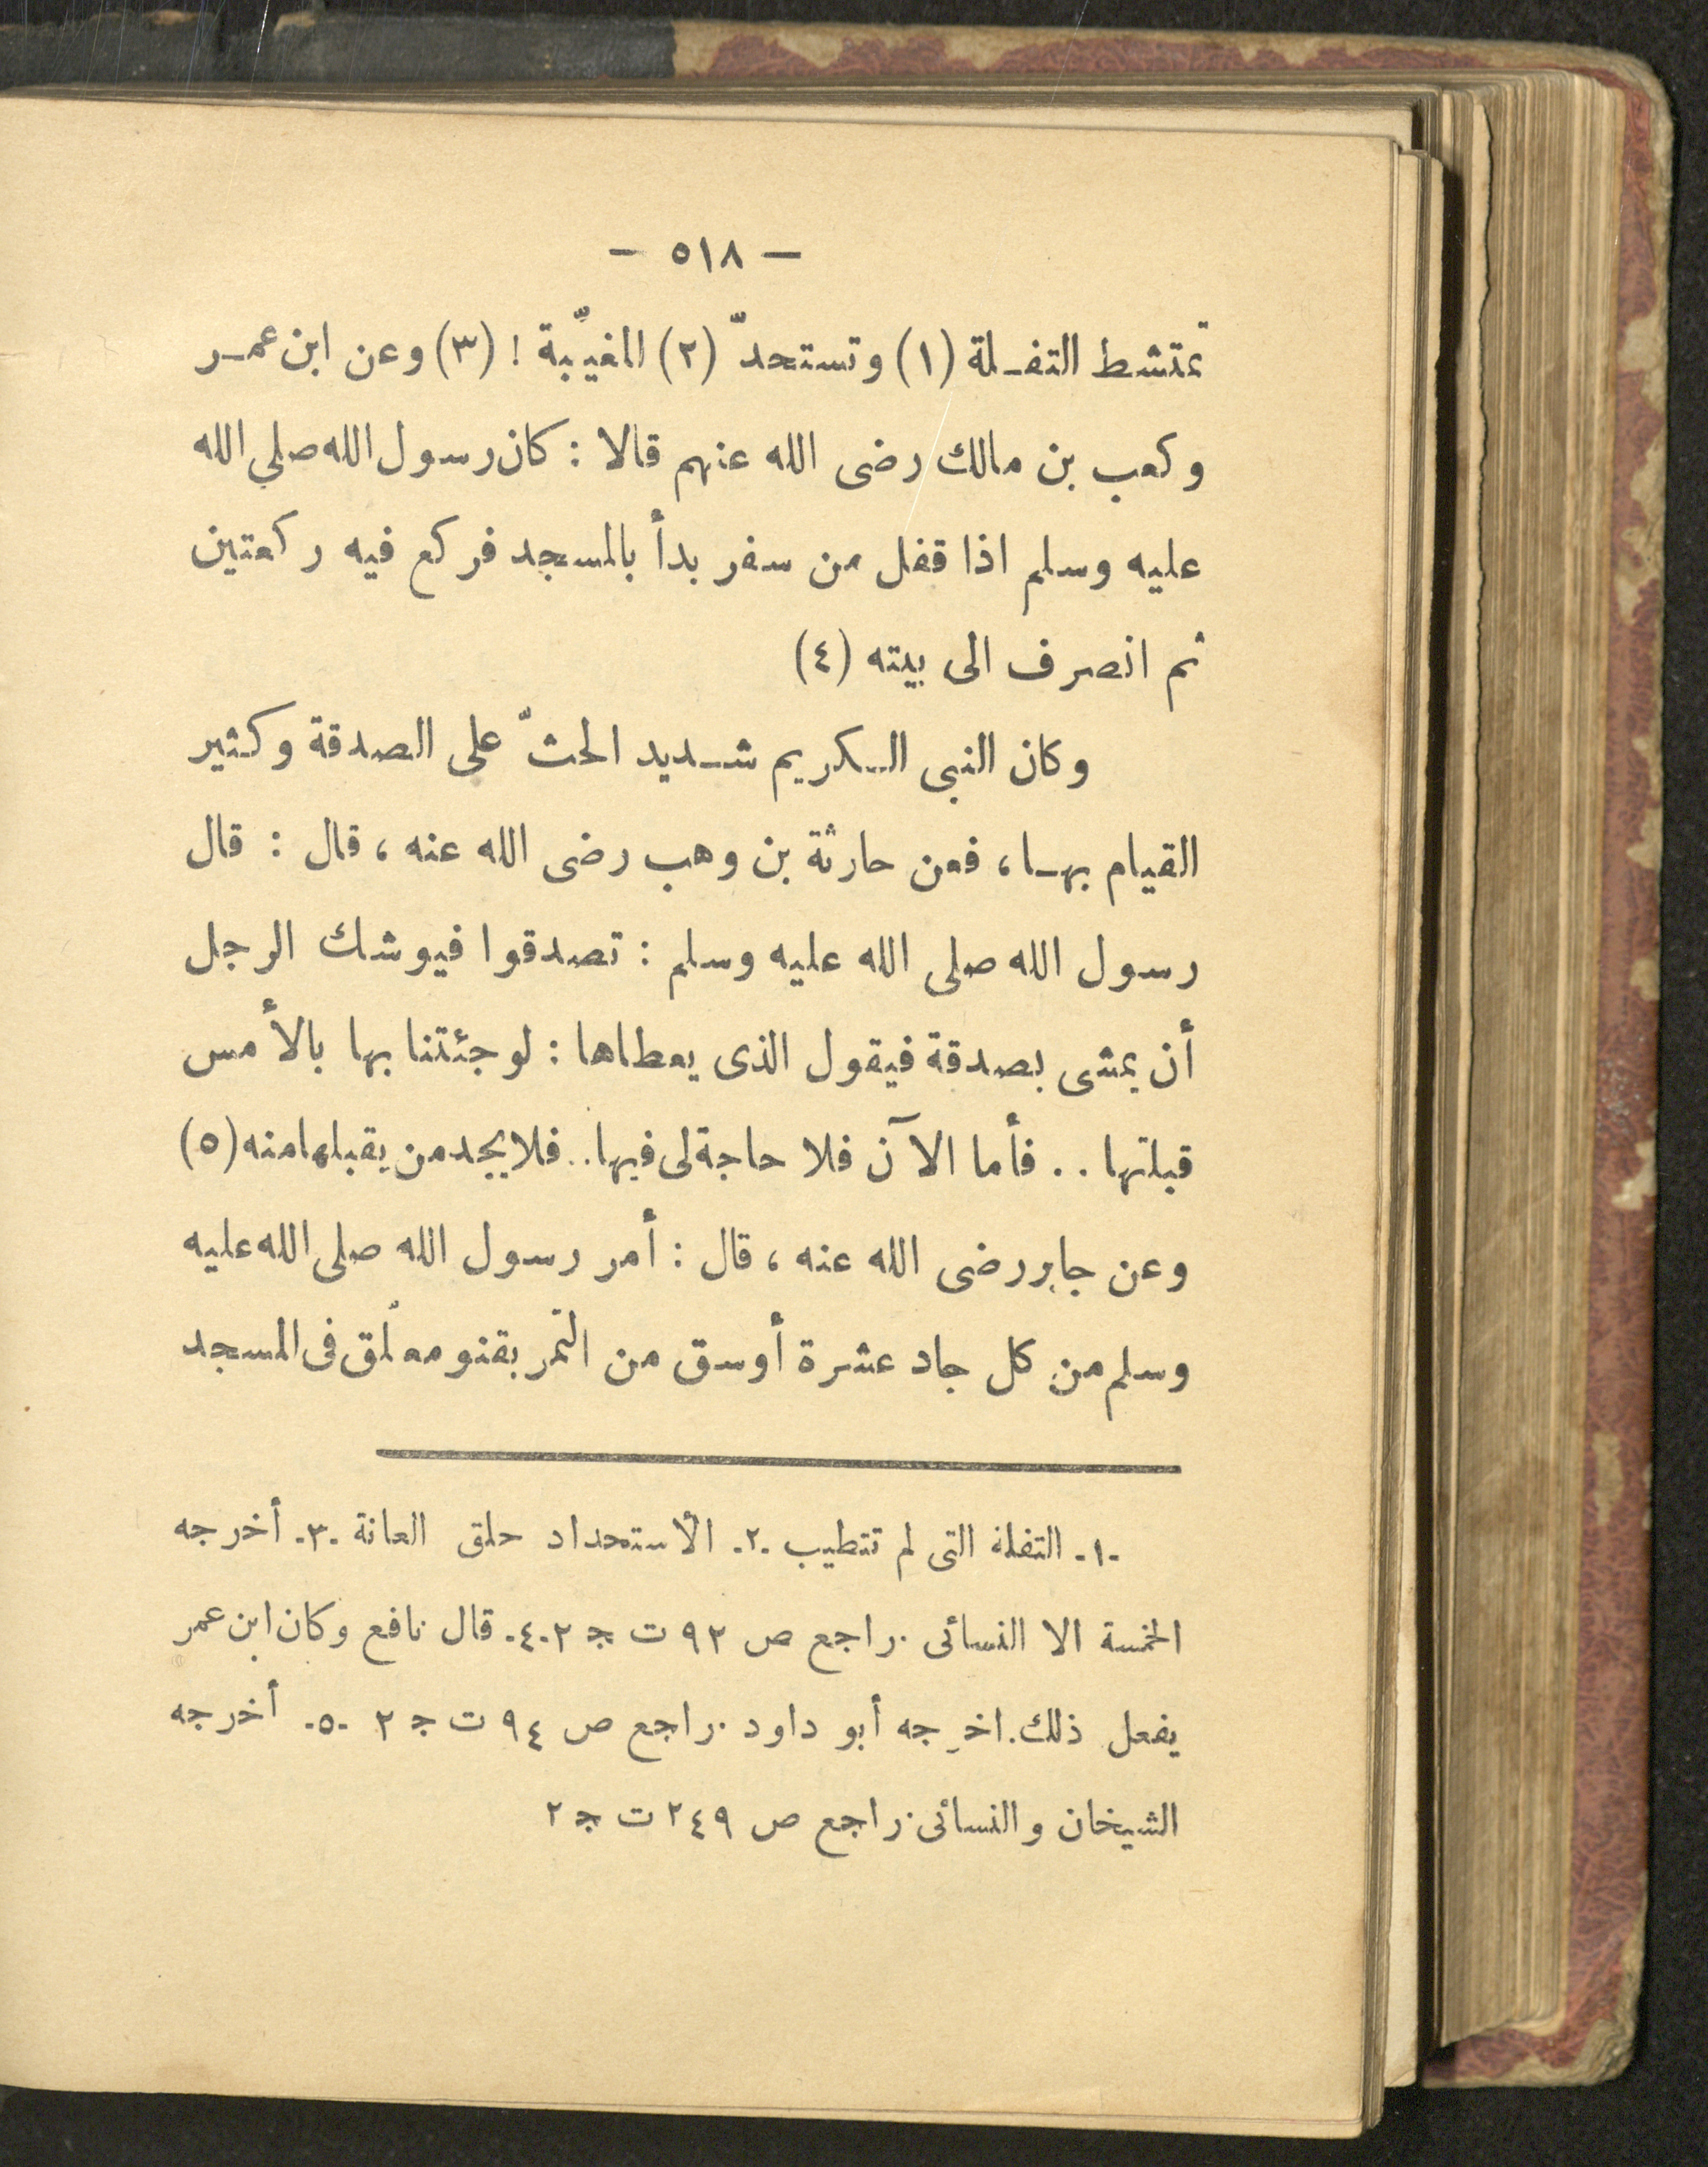 — ٥١٨ —
تمتشط التفلة (١) وتستحدّ (٢) المغيّبة ! (٣) وعن ابن عمر
وكعب بن مالك رضى الله عنهم قالا : كان رسول الله صلى الله
عليه وسلم اذا قفل من سفر بدأ بالمسجد فركع فيه ركعتين
ثم انصرف الى بيته (٤)
وكان النبى الكريم شديد الحثّ على الصدقة وكثير
القيام بها ، فعن حارثة بن وهب رضى الله عنه ، قال : قال
رسول الله صلى الله عليه وسلم : تصدقوا فيوشك الرجل
أن يمشى بصدقة فيقول الذى يعطاها : لو جئتنا بها بالأمس
قبلتها .. فأما الآن فلا حاجة لى فيها .. فلا يجد من يقبلها منه (٥)
وعن جابر رضى الله عنه ، قال : أمر رسول الله صلى الله عليه
وسلم من كل جاد عشرة أوسق من التمر بقنو معلق فى المسجد
-١- التفلة التى لم تتطيب -٢- الاستحداد حلق العانة -٣- أخرجه
الخمسة الا النسائى . راجع ص ٩٢ ت ج ٢ -٤- قال نافع وكان ابن عمر
يفعل ذلك . اخرجه أبو داود . راجع ص ٩٤ ت ج ٢ -٥- أخرجه
الشيخان والنسائى . راجع ص ٢٤٩ ت ج ٢